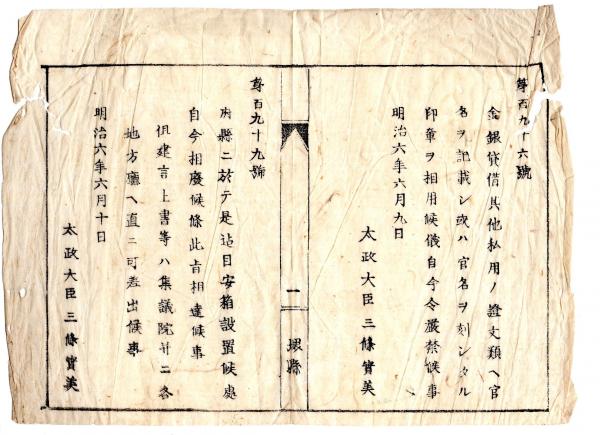 第百九十六號
金銀貸借其他私用ノ證文類ヘ官
名ヲ記載シ或ハ官名ヲ刻シタル
印章ヲ相用候儀自今令嚴禁候事
明治六年六月九日
太政大臣三條實美
一
堺縣
第百九十九號
府縣ニ於テ是迠目安箱設置候處
自今相廢候條此旨相達候事
但建言上書等ハ集議院并ニ各
地方廳ヘ直ニ可差出候事
明治六年六月十日
太政大臣三條實美